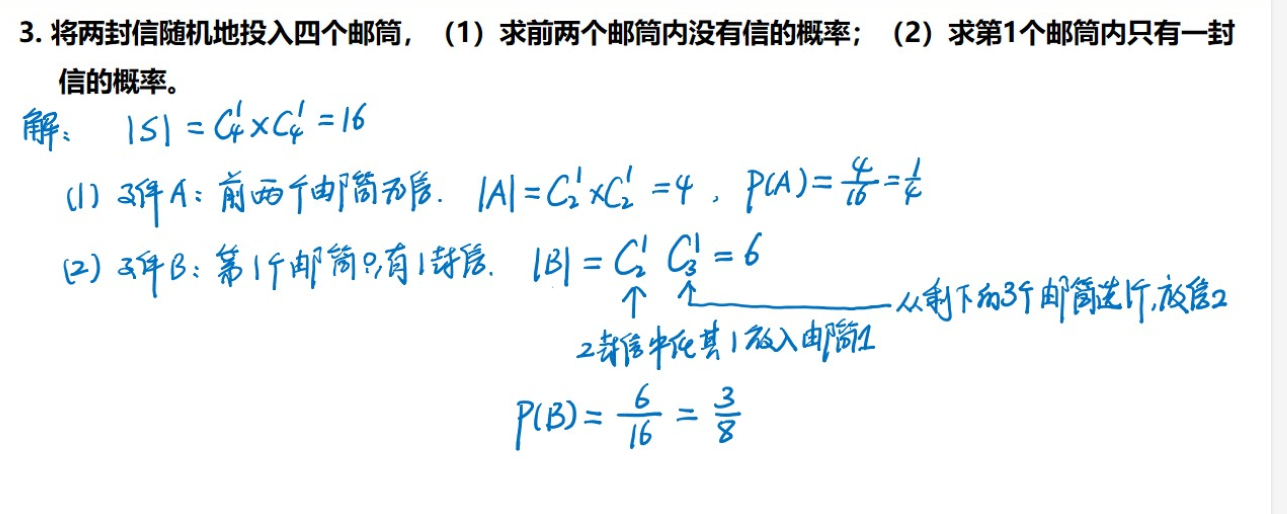 3. 将两封信随机地投入四个邮筒，（1）求前两个邮筒内没有信的概率；（2）求第1个邮筒内只有一封
信的概率。
解： |S| = C₄¹×C₄¹ = 16
(1) 事件A：前两个邮筒无信. |A| = C₂¹×C₂¹ = 4 , P(A) = 4/16 = 1/4
(2) 事件B：第1个邮筒只有1封信. |B| = C₂¹ C₃¹ = 6
↑ ↑ 从剩下的3个邮筒选1个,放信2
2封信中任其1放入邮筒1
P(B) = 6/16 = 3/8